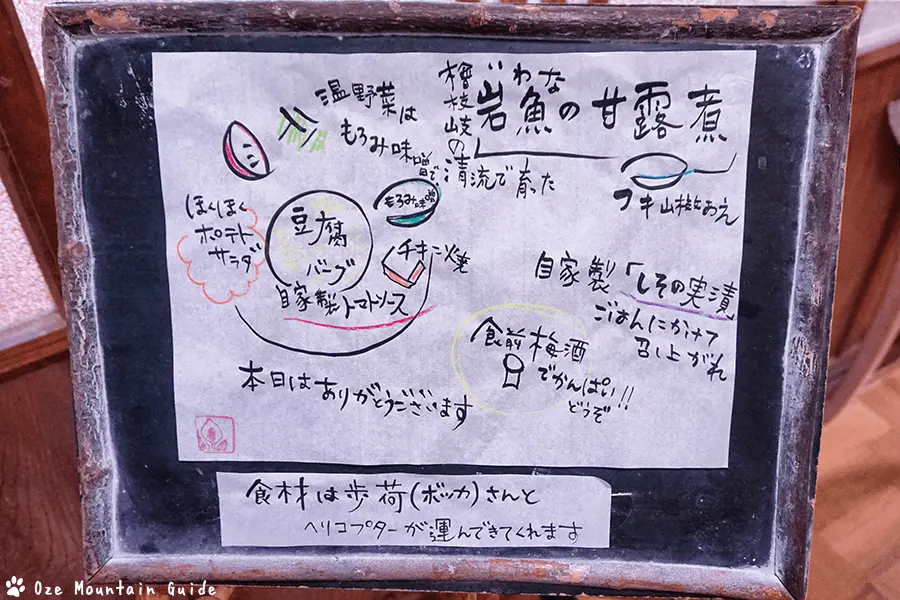 いわな
岩魚の甘露煮
檜枝岐の
清流で育った
フキ山椒おえ
温野菜は
もろみ味噌で
もろみ味噌
ほくほく
ポテト
サラダ
豆腐
バーグ
チキン焼
自家製トマトソース
自家製「しその実漬」
ごはんにかけて
召し上がれ
食前梅酒
でかんぱい!!
どうぞ
本日は
ありがとうございます
食材は歩荷(ボッカ)さんと
ヘリコプターが運んできてくれます
Oze Mountain Guide